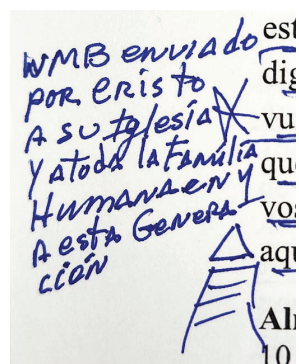 WMB enviado
por cristo
A su Iglesia
Y a toda la Familia
Humana en y
A esta Genera
ción
est
dig
vu
que
vos
aqu
Al
10